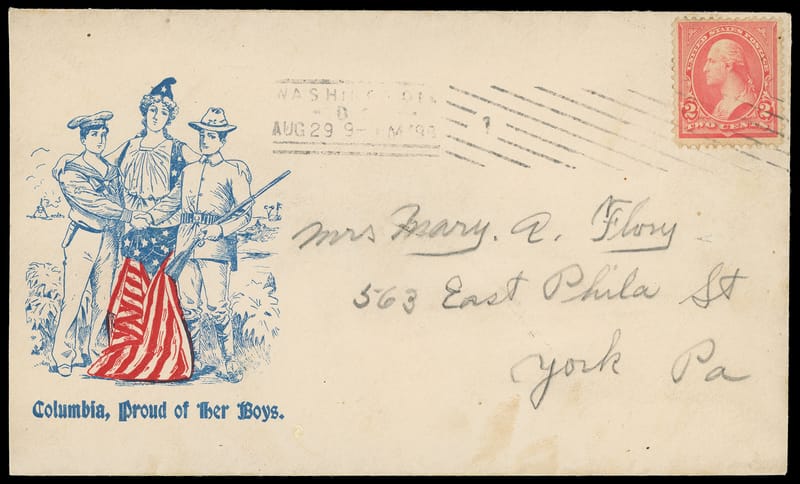 UNITED STATES POSTAGE
2 2
TWO CENTS
WASHINGTON
D
AUG 29 9- M '98
Mrs Mary. A. Flory
563 East Phila St
York Pa
Columbia, Proud of Her Boys.